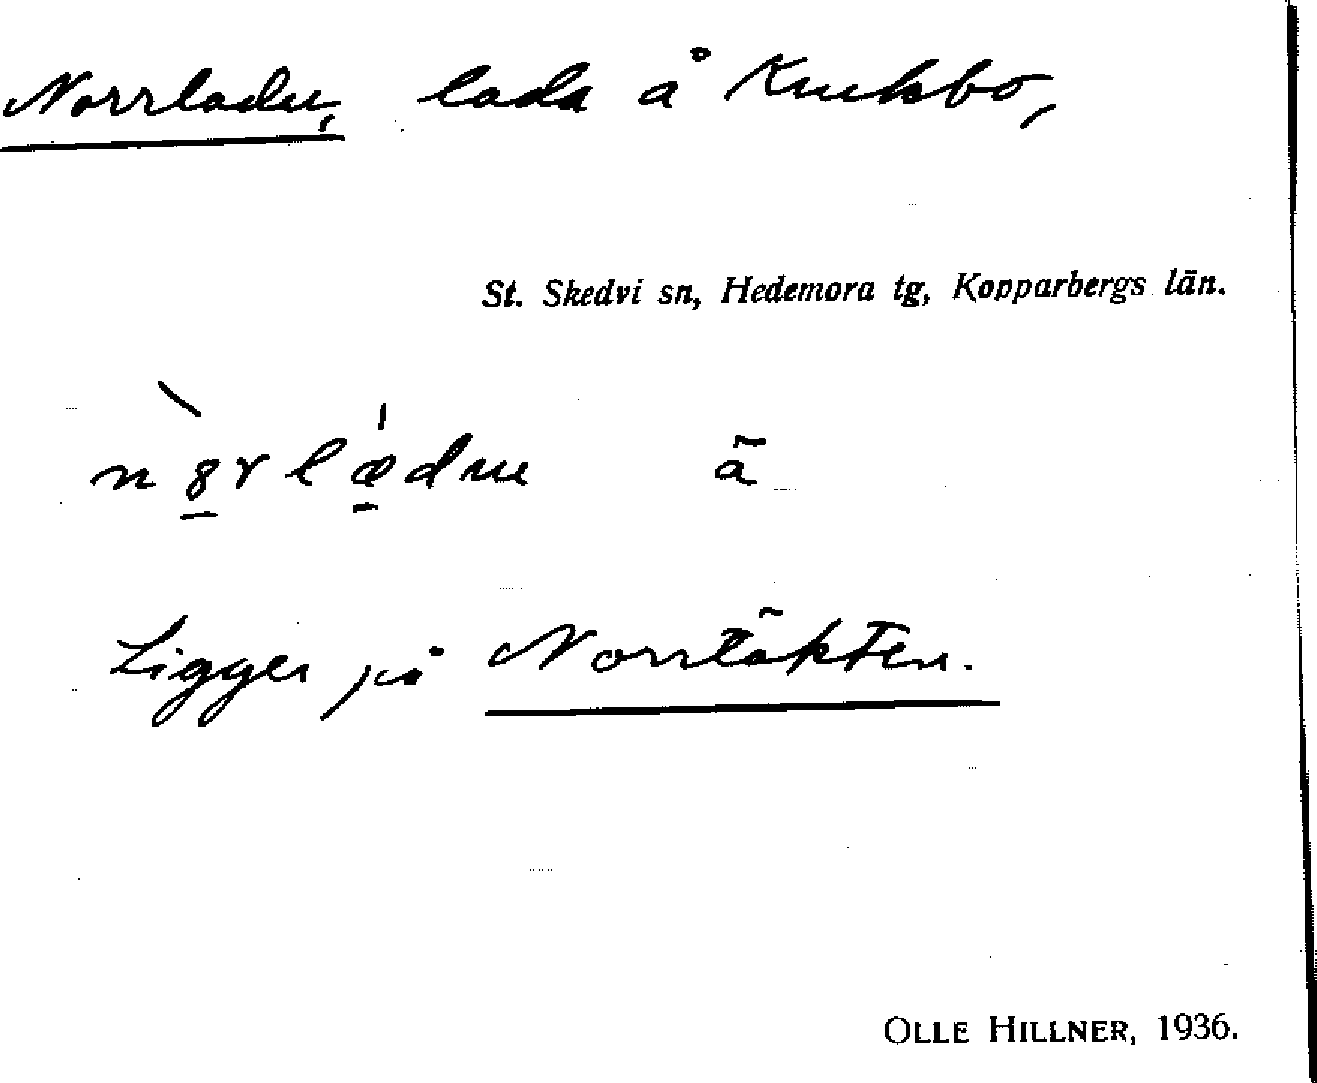 Norrladu, lada å Knutsbo,
St. Skedvi sn, Hedemora tg, Kopparbergs län.
ä
Ligger på Norrtäkten.
OLLE HILLNER, 1936.